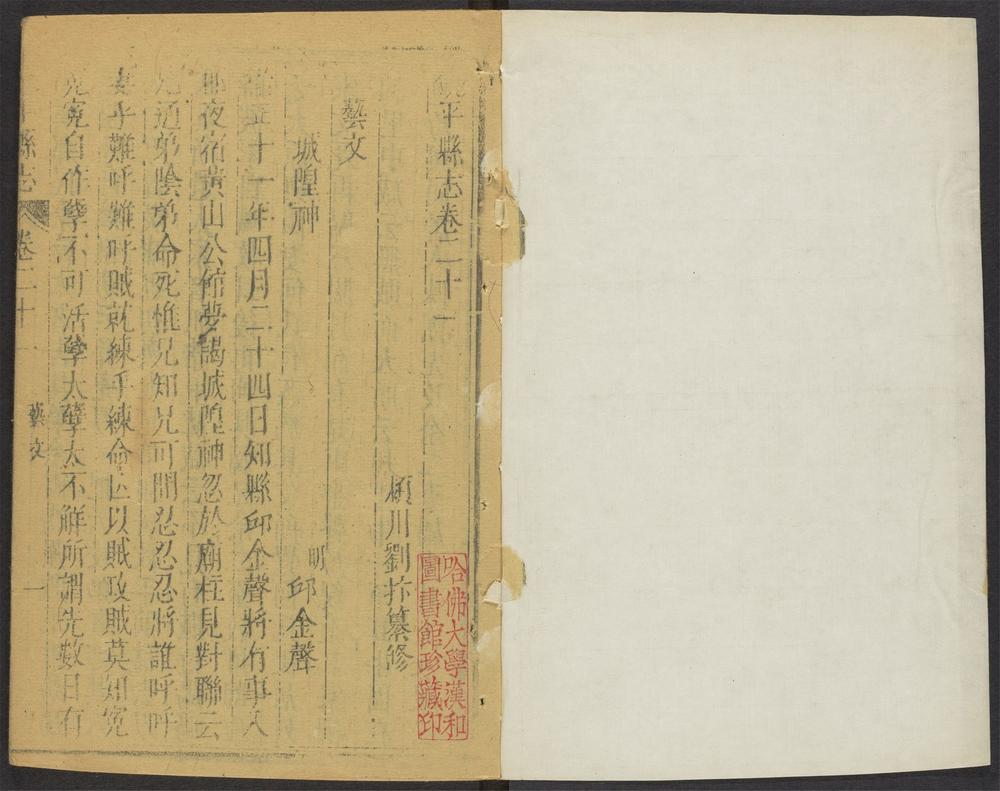 平縣志卷二十一
潁川劉㧑纂修
藝文
城隍神
明 邱金聲
五十一年四月二十四日知縣邱金聲將有事入
夜宿黃山公館夢謁城隍神忽於廟柱見對聯云
兄通弟陰弟命死惟兄知兄可問忍忍忍將誰呼呼
妻乎難呼難呼賊就練乎練命亡以賊攻賊莫知冤
冤自作孽不可活孽太孽太不解所謂先數日有
縣志 卷二十 藝文 一
哈佛大學漢和
圖書館珍藏印